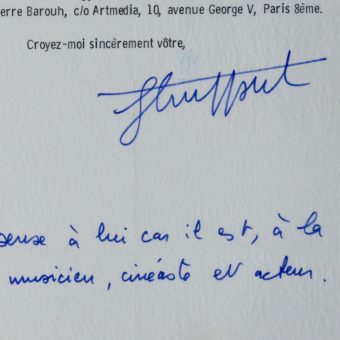 erre Barouh, c/o Artmedia, 10, avenue George V, Paris 8ème.
Croyez-moi sincèrement vôtre,
pense à lui car il est, à la
musicien, cinéaste et acteur.